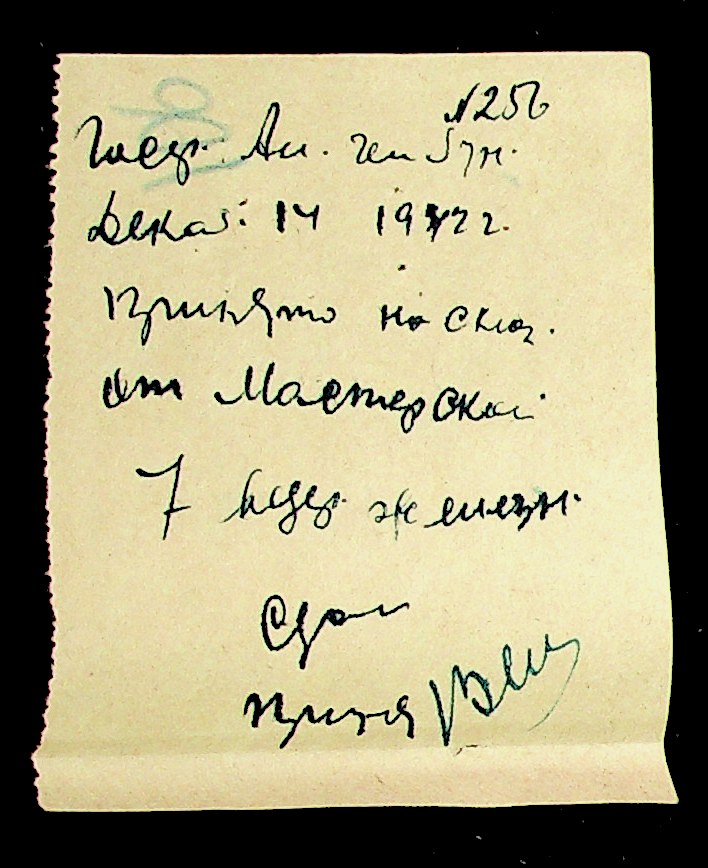 №256
Декаб. 14 1942 г.
Принято на склад.
от Мастерской
7 ведер железн.
Сдал
Принял